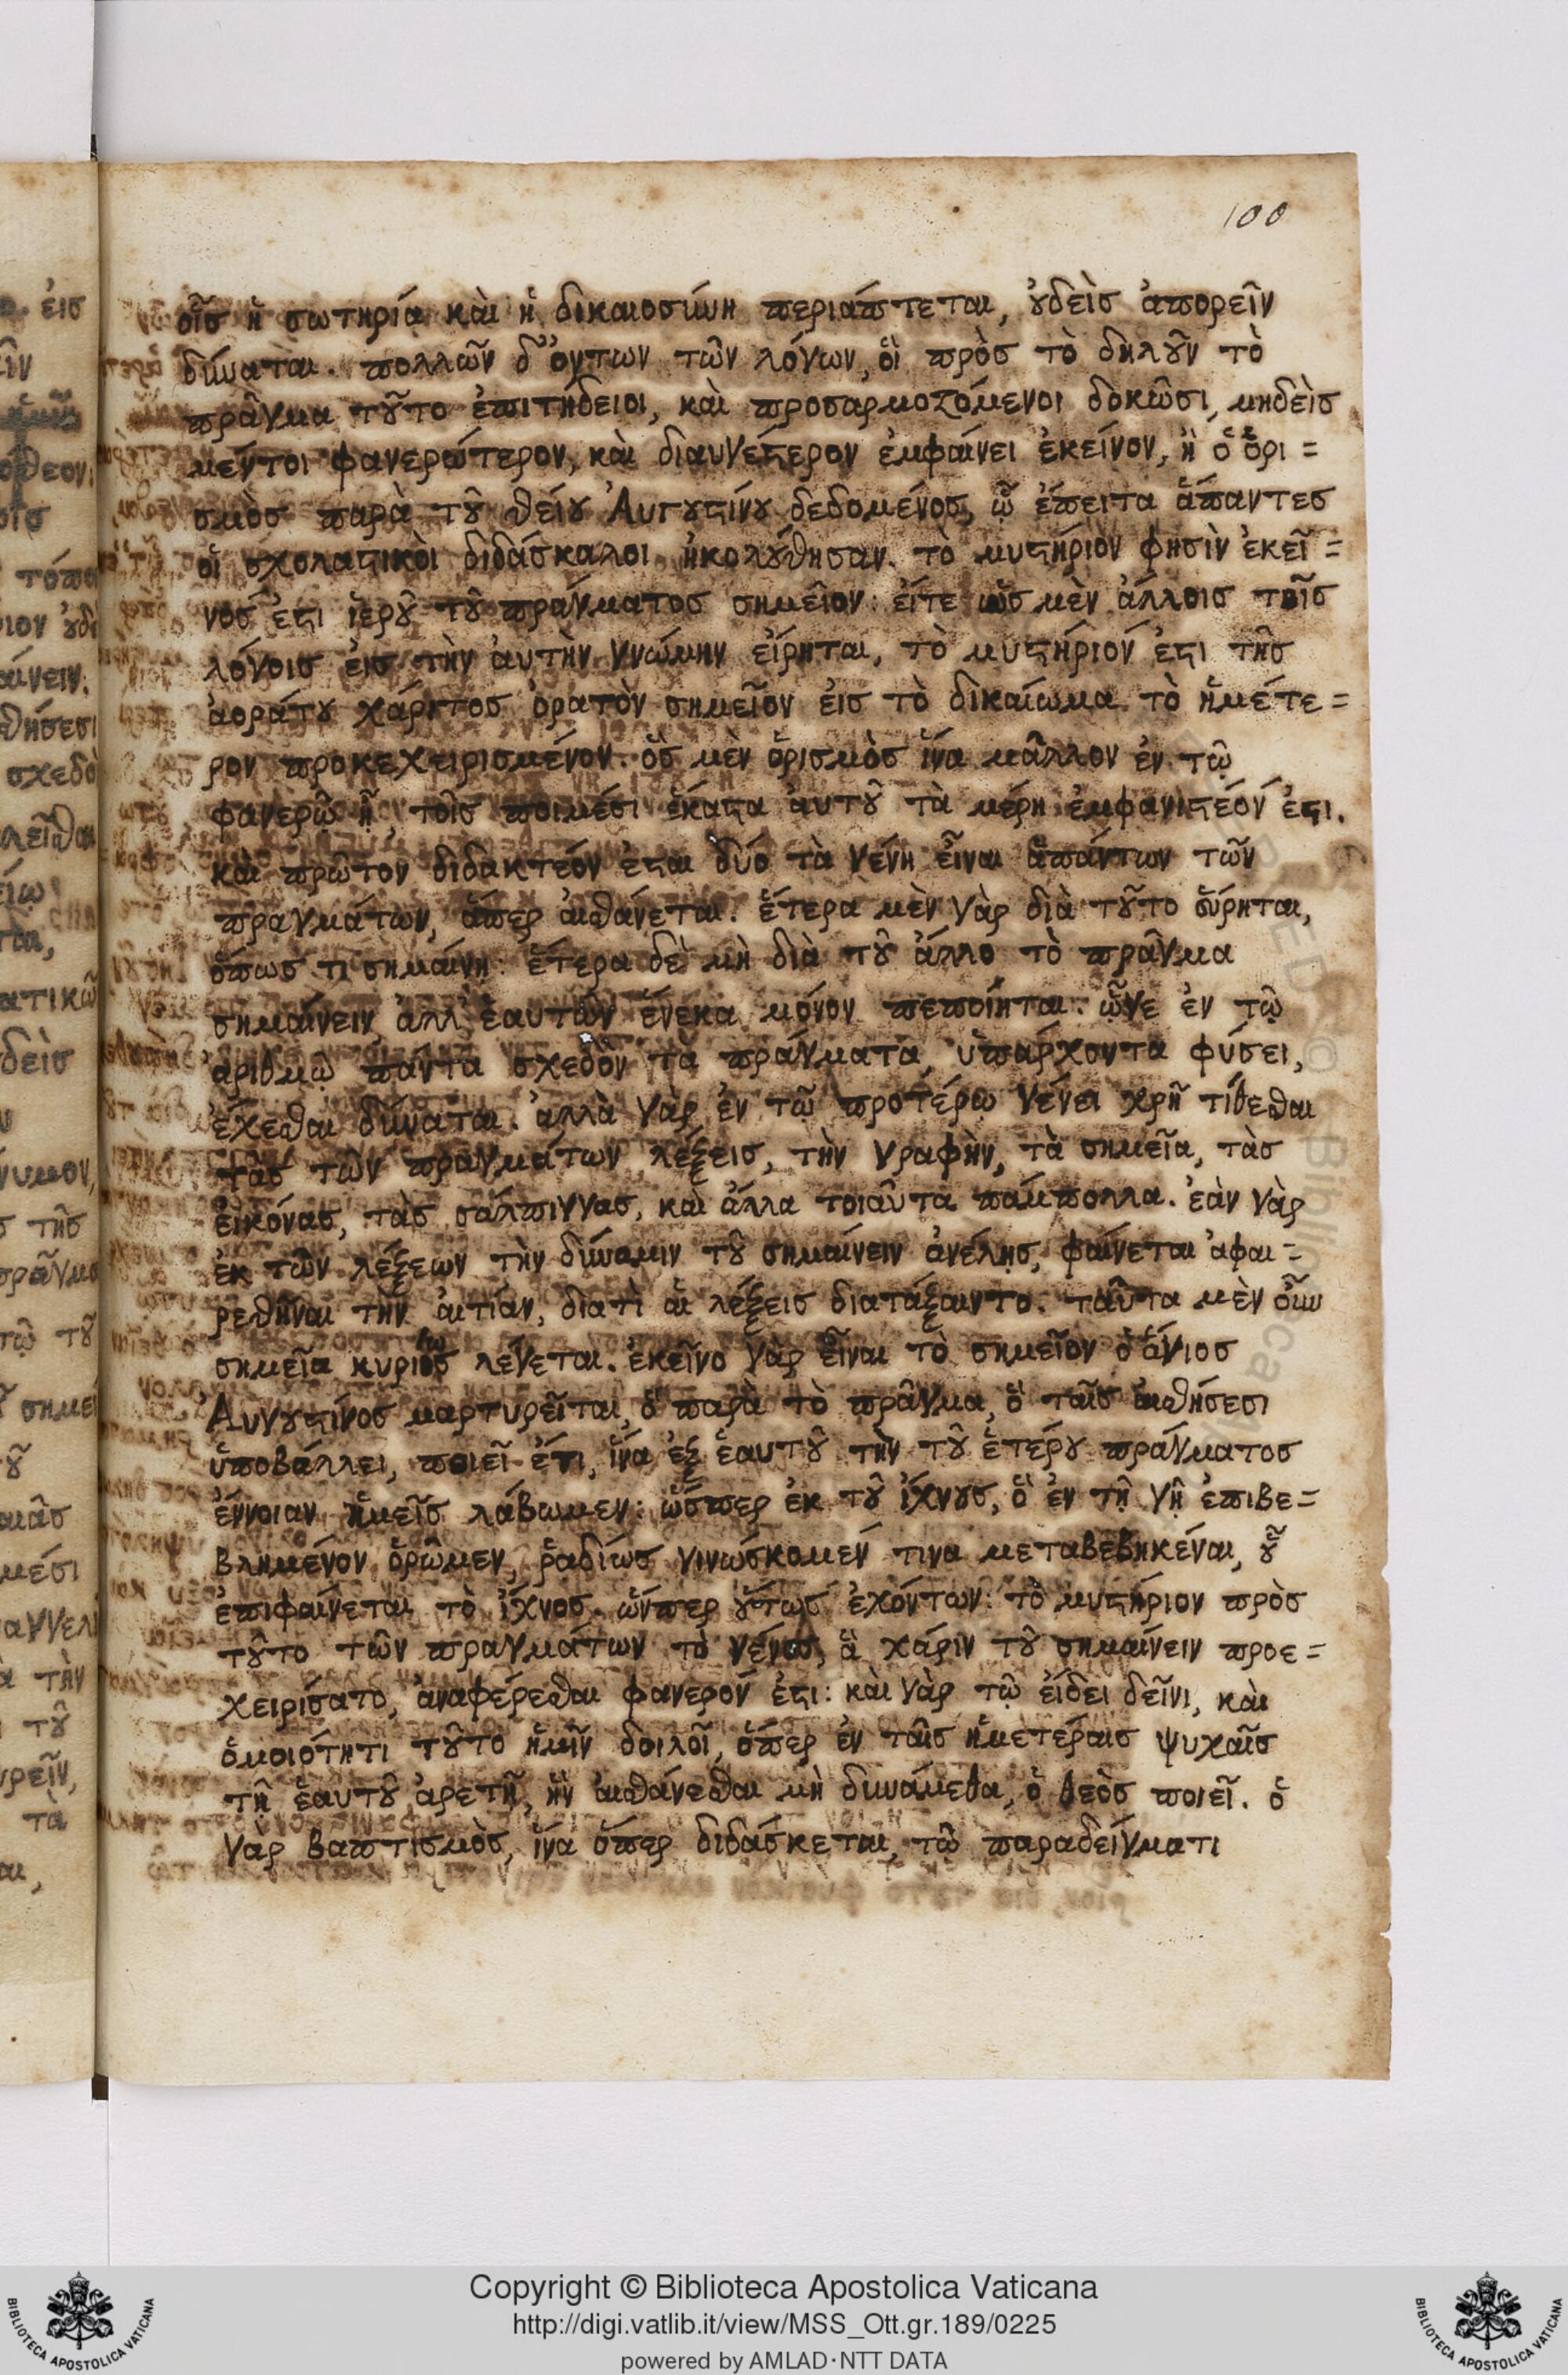 100
οἷς ἡ σωτηρία καὶ ἡ δικαιοσύνη περιάπτεται, ȣ̓δεὶς ἀπορεῖν
δύναται. πολλῶν δ' ὄντων τῶν λόγων, οἳ πρὸς τὸ δηλȣ͂ν τὸ
πρᾶγμα τȣ͂το ἐπιτήδειοι, καὶ προσαρμοζόμενοι δοκῶσι, μηδεὶς
μέντοι φανερώτερον, καὶ διαυγέϛερον ἐμφαίνει ἐκείνον, ἢ ὁ ὁρι=
σμὸς παρὰ τȣ͂ θείȣ Ἀυγȣϛίνȣ δεδομένος, ᾧ ἔπειτα ἅπαντες
οἱ σχολαϛικοὶ διδάσκαλοι ἠκολȣ́θησαν. τὸ μυϛήριον φησὶν ἐκεῖ=
νος ἐϛι ἱερȣ͂ τȣ͂ πράγματος σημεῖον: εἴτε ὡς μὲν ἄλλοις τοῖς
λόγοις ἐις τὴν ἀυτὴν γνώμην εἴρηται, τὸ μυϛήριόν ἐϛι τῆς
ἀοράτȣ χάριτος ὁρατὸν σημεῖον ἐις τὸ δικαίωμα τὸ ἡμέτε=
ρον προκεχειρισμένον. ὃς μὲν ὁρισμὸς ἵνα μᾶλλον ἐν τῷ
φανερῷ ᾖ, τοῖς ποιμέσι ἕκαϛα ἀυτȣ͂ τὰ μέρη ἐμφανιϛέον ἐϛι.
καὶ πρῶτον διδακτέον ἐϛαι δύο τὰ γένη εἶναι ἁπάντων τῶν
πραγμάτων, ἅπερ ἀισθάνεται. ἕτερα μὲν γὰρ διὰ τȣ͂το ἕυρηται,
ὅπως τι σημαίνῃ: ἕτερα δὲ μὴ διὰ τȣ͂ ἄλλο τὸ πρᾶγμα
σημαίνειν ἀλλ' ἑαυτῶν ἕνεκα μόνον πεποίηται. ᾧγε ἐν τῷ
ἀριθμῷ πάντα σχεδὸν τὰ πράγματα, ὑπάρχοντα φύσει,
ἔχεσθαι δύναται. ἀλλὰ γὰρ ἐν τῷ προτέρῳ γένει χρῆ τίθεσθαι
τὰς τῶν πραγμάτων λέξεις, τὴν γραφὴν, τὰ σημεῖα, τὰς
ἐικόνας, τὰς σάλπιγγας, καὶ ἄλλα τοιαῦτα πάμπολλα. ἐὰν γὰρ
ἐκ τῶν λέξεων τὴν δύναμιν τȣ͂ σημαίνειν ἀνέλῃς, φαίνεται ἀφαι=
ρεθῆναι τὴν ἀιτίαν, διατὶ αἱ λέξεις διατάξαιντο. ταῦτα μὲν ὂυν
σημεῖα κυρίως λέγεται. ἐκεῖνο γὰρ εἶναι τὸ σημεῖον ὁ ἅγιος
Ἀυγȣϛίνος μαρτυρεῖται, ὃ παρὰ τὸ πρᾶγμα, ὃ ταῖς ἀισθήσεσι
ὑποβάλλει, ποιεῖ ἔτι, ἵνα ἐξ ἑαυτȣ͂ τὴν τȣ͂ ἑτέρȣ πράγματος
ἔννοιαν ἡμεῖς λάβωμεν: ὥσπερ ἐκ τȣ͂ ἴχνȣς, ὃ ἐν τῇ γῇ ἐπιβε=
βλημένον ὁρῶμεν, ῥαδίως γινώσκομέν τινα μεταβεβηκέναι, ȣ̔͂
ἐπιφαίνεται τὸ ἴχνος. ὥνπερ ȣ̔́τως ἐχόντων: τὸ μυϛήριον πρὸς
τȣ͂το τῶν πραγμάτων τὸ γένος, ἃ χάριν τȣ͂ σημαίνειν προε=
χειρίσατο, ἀναφέρεσθαι φανερόν ἐϛι: καὶ γὰρ τῷ εἴδει δεῖνι, καὶ
ὁμοιότητι τȣ͂το ἡμῖν δοιλοῖ, ὅπερ ἐν ταῖς ἡμετέραις ψυχαῖς
τῇ ἑαυτȣ͂ ἀρετῇ, ἣν ἀισθάνεσθαι μὴ δυνάμεθα, ὁ θεὸς ποιεῖ. ὁ
γὰρ βαπτισμὸς, ἵνα ὅπερ διδάσκεται, τῷ παραδείγματι
Copyright © Biblioteca Apostolica Vaticana
http://digi.vatlib.it/view/MSS_Ott.gr.189/0225
powered by AMLAD·NTT DATA
BIBLIOTECA APOSTOLICA VATICANA
BIBLIOTECA APOSTOLICA VATICANA